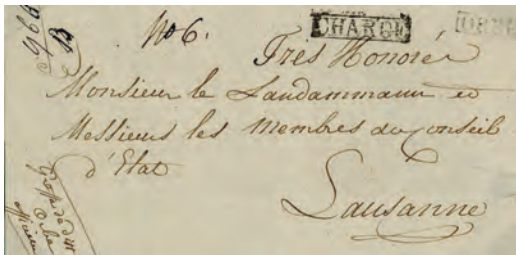 No 6.
CHARGÉ
Très Honoré
Monsieur le Landammann et
Messieurs les Membres du Conseil
d'Etat
Lausanne